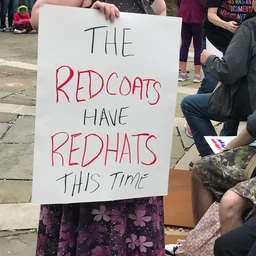 THE
REDCOATS
HAVE
REDHATS
THIS TIME